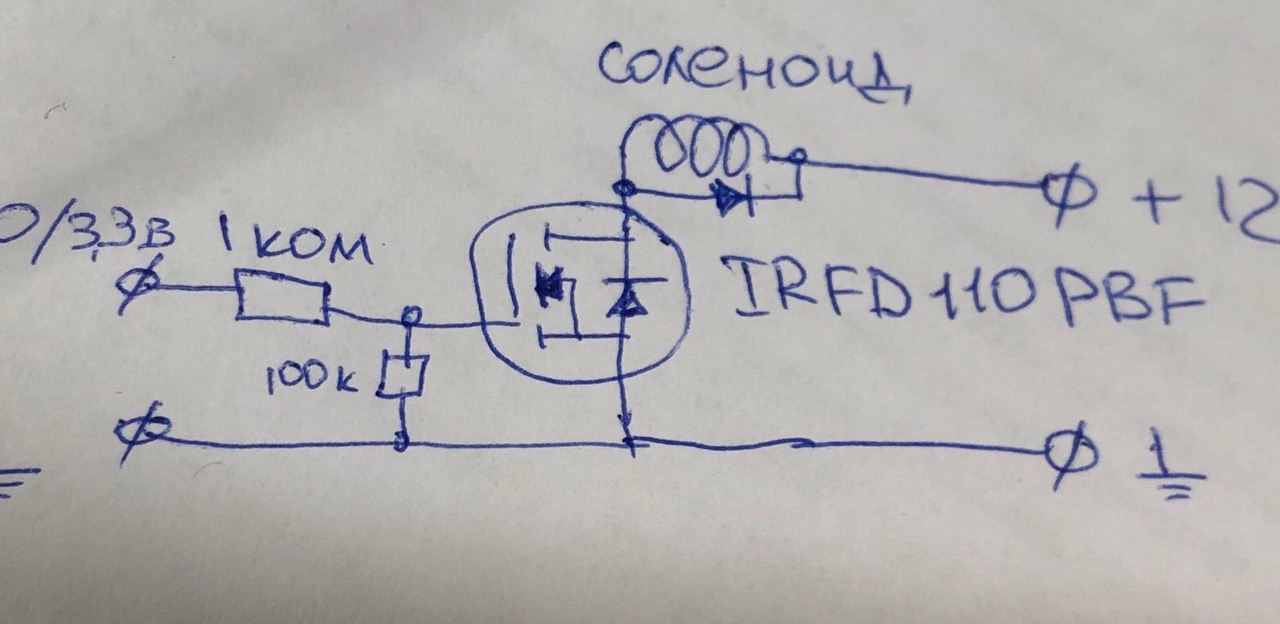 соленоид
+ 12
0/3,3в
1 ком
IRFD 110 PBF
100к
1